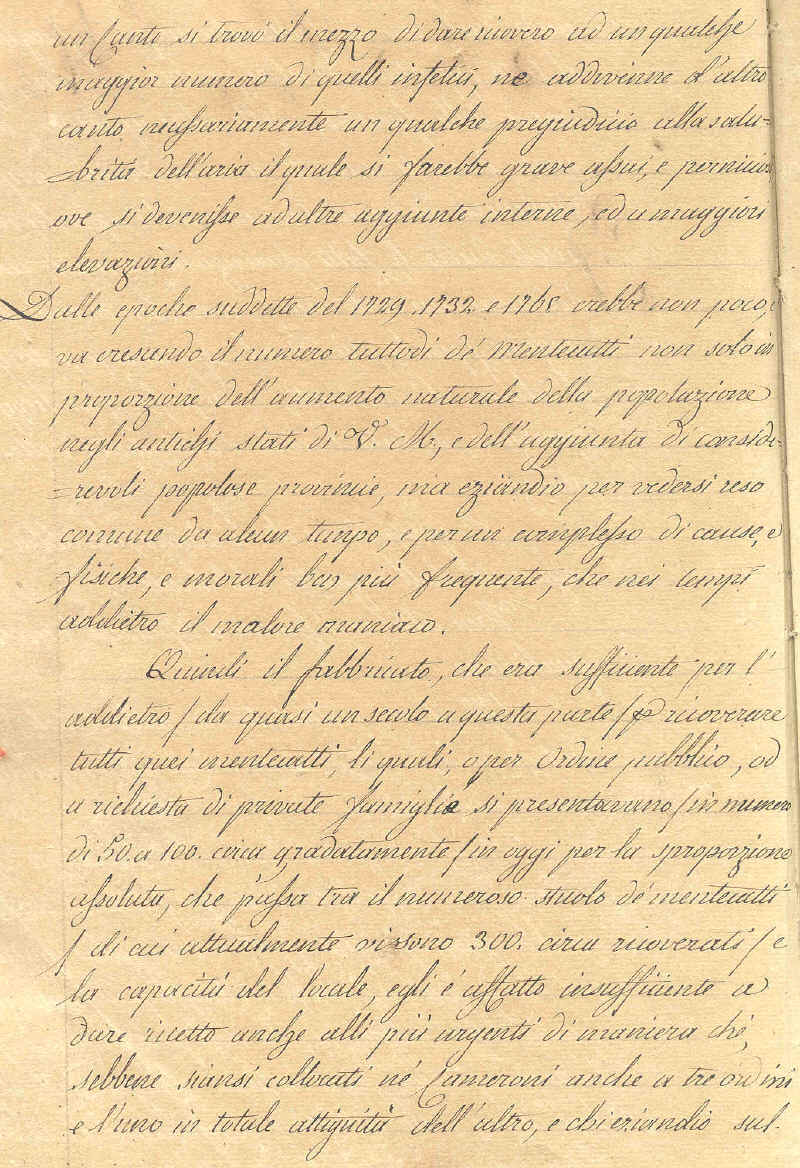 un Canto si trovò il mezzo di dare ricovero ad un qualche
maggior numero di quelli infelici, ne addivenne d'altro
canto necessariamente un qualche pregiudicio alla salu=
=brità dell'aria il quale si farebbe grave assai, e pernicios
ove si devenisse ad altre aggiunte interne, ed a maggiori
elevazioni.
Dalle epoche suddette del 1729. 1732 e 176 crebbe non poco, e
va crescendo il numero tuttodì de' Mentecatti non solo in
proporzione dell'aumento naturale della popolazione
negli antichi stati di V. M., e dell'aggiunta di conside=
=revoli popolose provincie, ma eziandio per vedersi reso
comune da alcun tempo, e per un complesso di cause, e
fisiche, e morali ben più frequente, che nei tempi
addietro il malore maniaco.
Quindi il fabbricato, che era sufficiente per l'
addietro / da quasi un secolo a questa parte / p ricoverare
tutti quei mentecatti, li quali, o per Ordine pubblico, od
a richiesta di private famiglie si presentavano / in numero
di 50. a 100. circa gradatamente / in oggi per la sproporzione
assoluta, che passa tra il numeroso stuolo de' mentecatti
/ di cui attualmente vi sono 300. circa ricoverati / e
la capacità del locale, egli è affatto insufficiente a
dare ricetto anche alli più urgenti di maniera che,
sebbene siansi collocati ne' Cameroni anche a tre ordini
e l'uno in totale attiguità dell'altro, e chi eziandio sul-